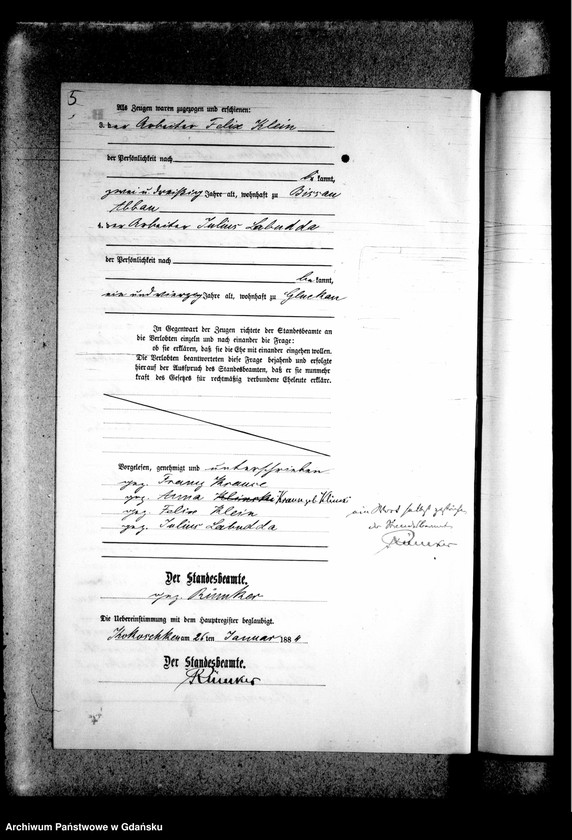 5
Als Zeugen waren zugezogen und erschienen:
3. der Arbeiter Felix Klein
der Persönlichkeit nach
be kannt,
zwei u dreißig Jahre alt, wohnhaft zu Bissau
Abbau
4. der Arbeiter Julius Labudda
der Persönlichkeit nach
be kannt,
ein und vierzig Jahre alt, wohnhaft zu Gluckau
In Gegenwart der Zeugen richtete der Standesbeamte an
die Verlobten einzeln und nach einander die Frage:
ob sie erklären, daß sie die Ehe mit einander eingehen wollen.
Die Verlobten beantworteten diese Frage bejahend und erfolgte
hierauf der Ausspruch des Standesbeamten, daß er sie nunmehr
kraft des Gesetzes für rechtmäßig verbundene Eheleute erkläre.
Vorgelesen, genehmigt und unterschrieben
gez. Franz Krause
gez. Anna Klinski geb Klinski
gez. Felix Klein
gez. Julius Labudda
ein Wort selbst gestrichen
der Standesbeamte
Rümker
Der Standesbeamte.
gez. Rümker
Die Uebereinstimmung mit dem Hauptregister beglaubigt.
Kokoschken am 26 ten Januar 1884
Der Standesbeamte.
Rümker
Archiwum Państwowe w Gdańsku